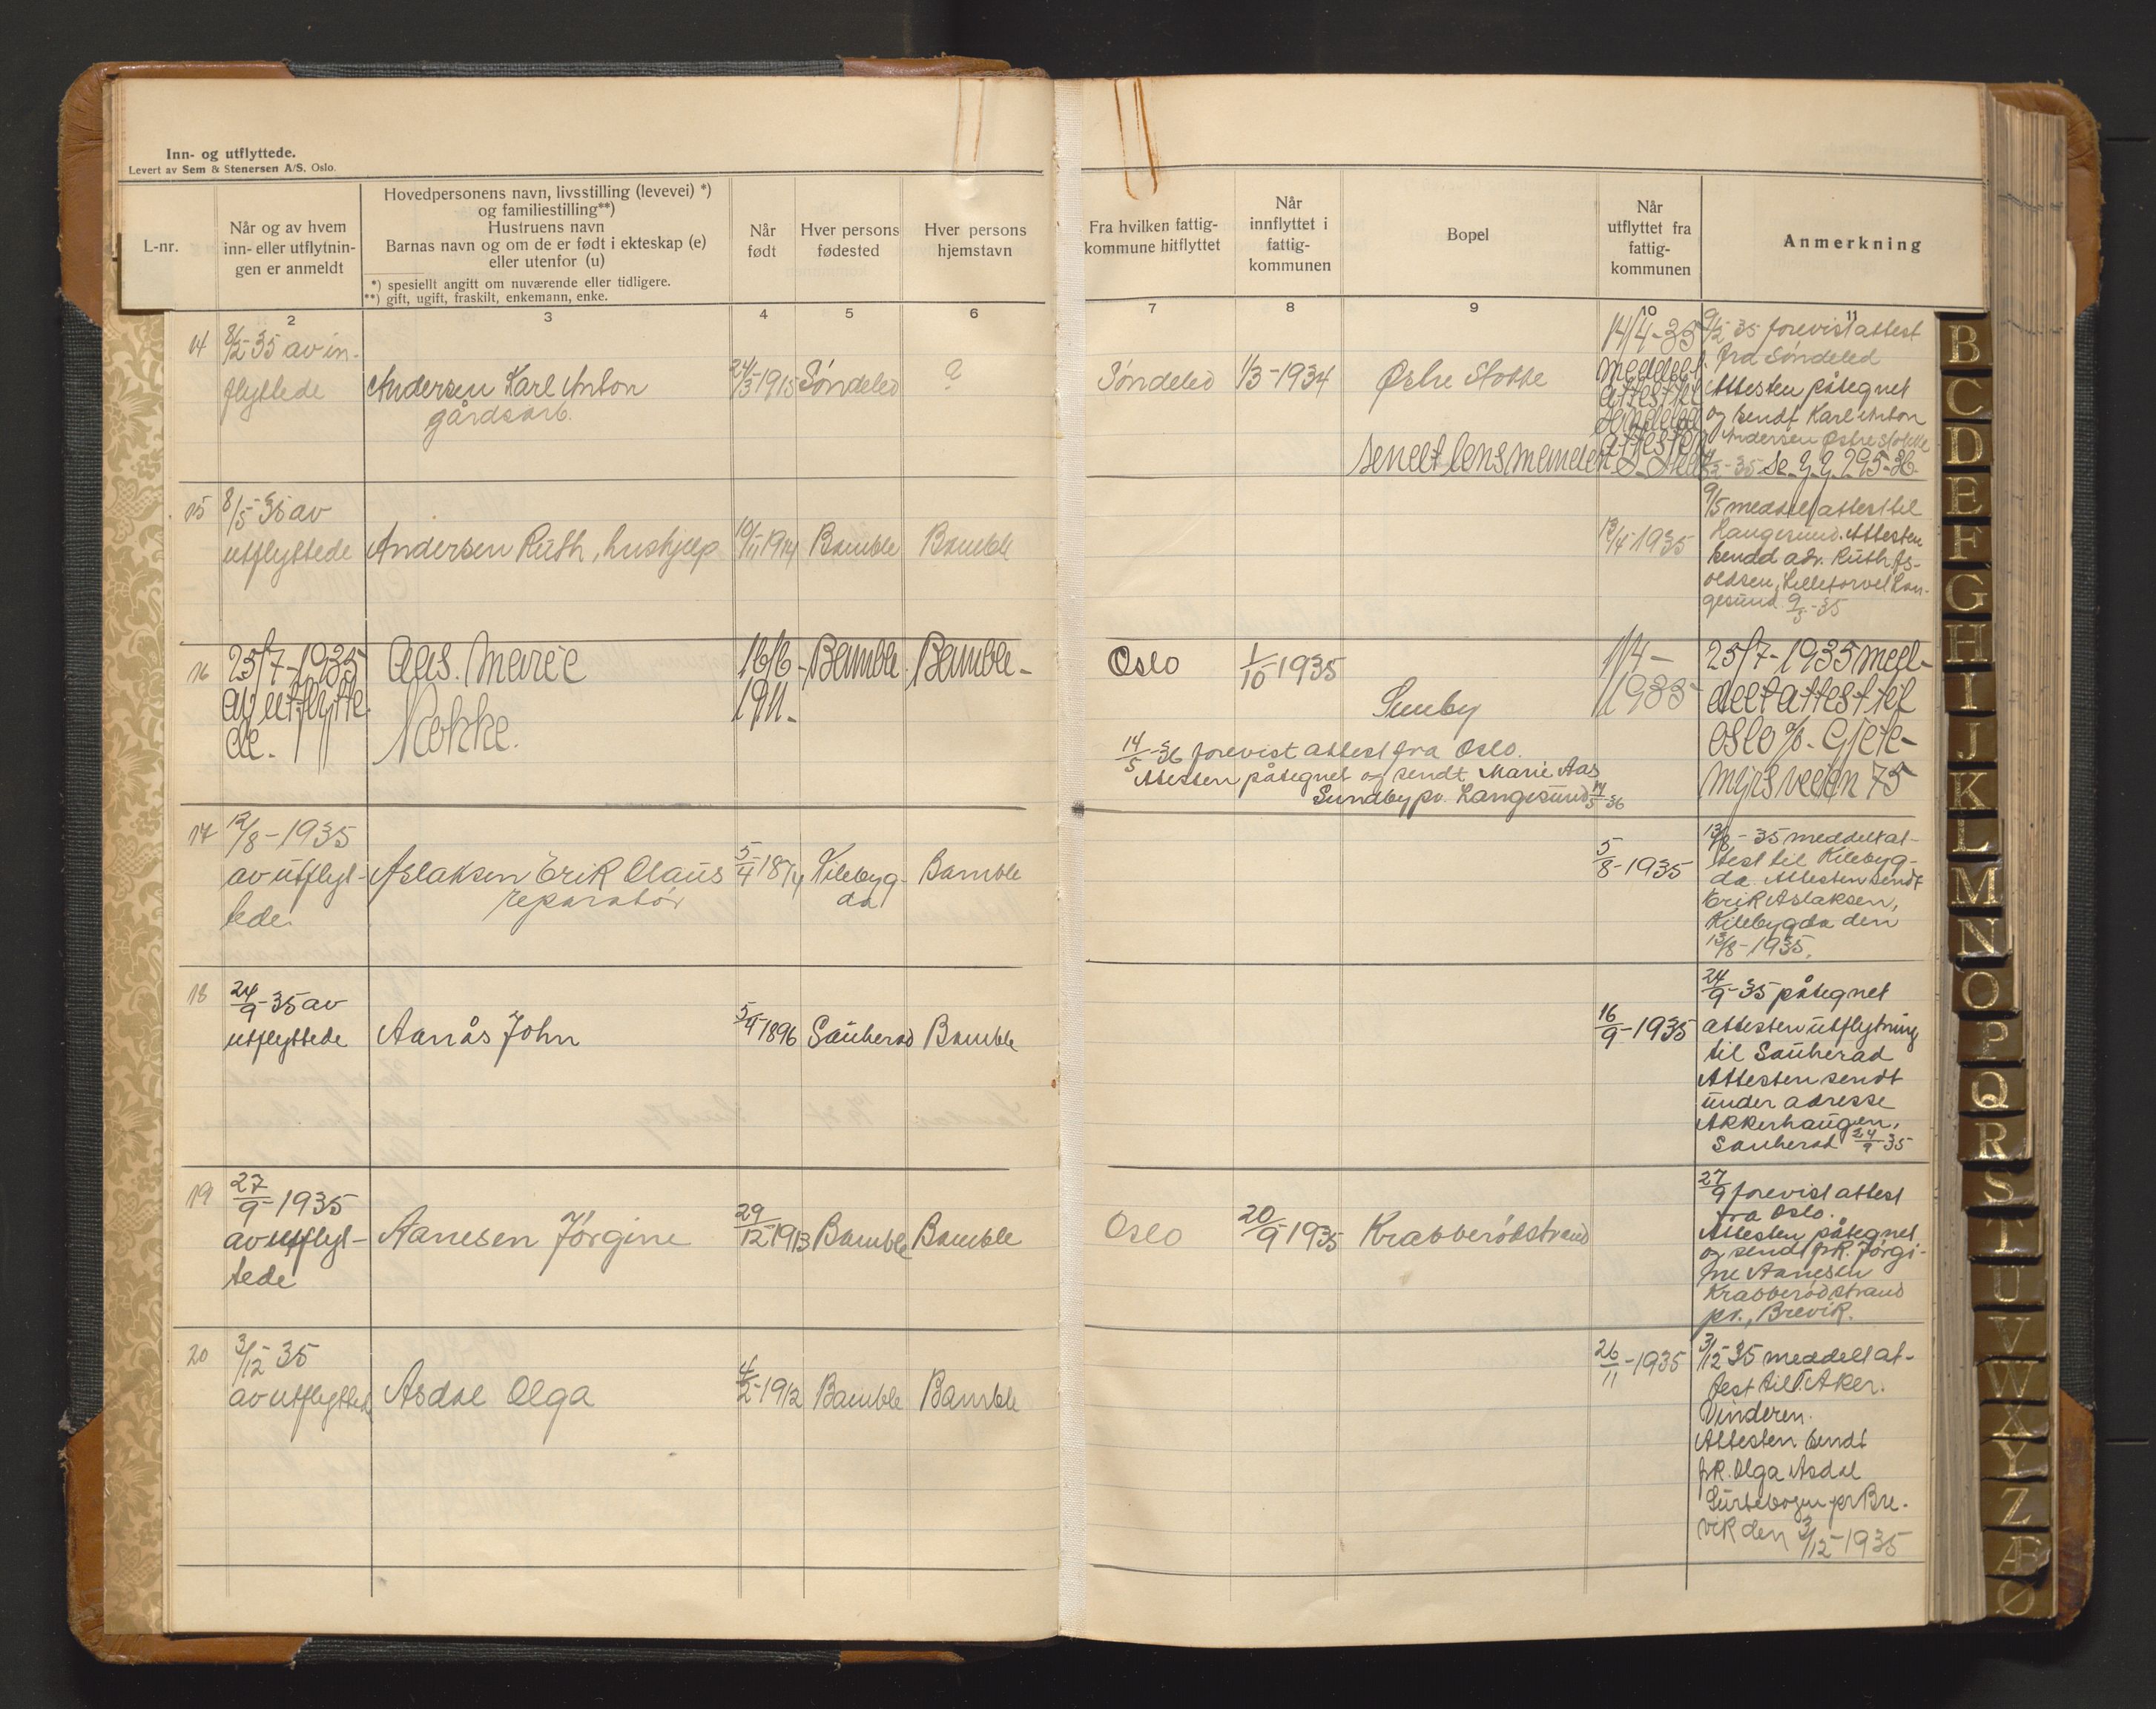 Inn- og utflyttede.
Levert av Sem & Stenersen A/S, Oslo.
L-nr.
Når og av hvem
inn- eller utflytnin-
gen er anmeldt
Hovedpersonens navn, livsstilling (levevei) *)
og familiestilling**)
Hustruens navn
Barnas navn og om de er født i ekteskap (e)
eller utenfor (u)
*) spesiellt angitt om nuværende eller tidligere.
**) gift, ugift, fraskilt, enkemann, enke.
Når
født
Hver persons
fødested
Hver persons
hjemstavn
Fra hvilken fattig-
kommune hitflyttet
Når
innflyttet i
fattig-
kommunen
Bopel
Når
utflyttet fra
fattig-
kommunen
Anmerkning
2 3 4 5 6 7 8 9 10 11
14
8/2-35 av in-
flyttede
Andersen Karl Anton
gårdsarb.
24/3-1915
Søndeled
?
Søndeled
1/3-1934
Østre Stokke
14/4-35
meddelt
attest til
Søndeled
attesten
sendt lensmanden
9/2-35 forevist attest
fra Søndeled
Attesten påtegnet
og sendt Karl Anton
Andersen Østre Stokke
15
8/5-35 av
utflyttede
Andersen Ruth, hushjelp
10/11 1914
Bamble
Bamble
12/4-1935
9/5 meddelt attest til
Langesund. Attesten
sendd adr. Ruth As-
oldsen, Lilletorvet Lan-
gesund 9/5-35
16
25/7-1935
av utflytte-
de.
Aas. Marie
Kokke.
16/6-
1911-
Bamble.
Bamble-
Oslo
1/10-1935
Sunby
1/4-
1935
25/7-1935 med-
delt attest tel
Oslo %. Gjete-
myrsveien 75
14/5-36 forevist attest fra Oslo.
Attesten påtegnet og sendt Marie Aas
Sundby pr. Langesund 14/5-36
17
12/8-1935
av utflyt-
tede.
Aslaksen Erik Olaus
reparatør
5/4-1874
Kilebyg-
da
Bamble
5/8-1935
13/8-35 meddelt at-
test til Kilebyg-
da. Attesten sendt
Erik Aslaksen,
Kilebygda den
13/8-1935.
18
24/9-35 av
utflyttede
Aanås John
5/9-1896
Sauherad
Bamble
16/9-1935
24/9-35 påtegnet
attesten utflytning
til Sauherad
Attesten sendt
under adresse
Akkerhaugen,
Sauherad 24/9-35
19
27/9-1935
av utflyt-
tede
Aanesen Jørgine
29/12-1913
Bamble
Bamble
Oslo
20/9-1935
Krabberødstrand
27/9 forevist attest
fra Oslo.
Attesten påtegnet
og sendt frk. Jørgi-
ne Aanesen
Krabberødstrand
pr., Brevik.
20
3/12-35
av utflyttede
Asdal Olga
4/2-1912
Bamble
Bamble
26/11-1935
3/12-35 meddelt at-
test til Aker.
Vinderen.
Attesten sendt
frk. Olga Asdal
Surtebogen pr Bre-
vik den 3/12-1935
B
C
D
E
F
G
H
I
J
K
L
M
N
O
P
Q
R
S
T
U
V
W
X
Y
Z
Æ
Ø